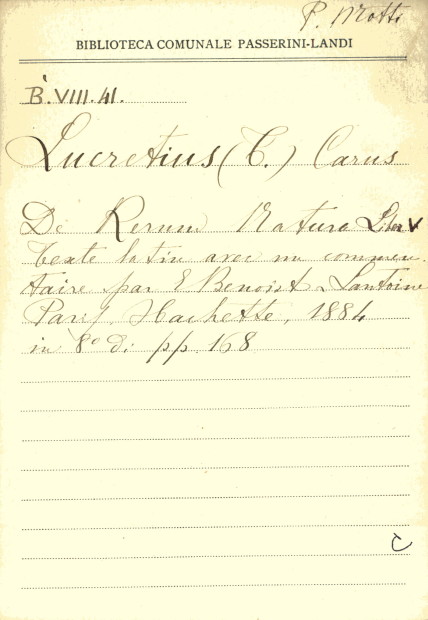 P. Motti
BIBLIOTECA COMUNALE PASSERINI-LANDI
B.VIII.41.
Lucretius (T.) Carus
De Rerum Natura Liber V
texte latin avec un commen-
taire par E Benoist & Lantoine
Paris, Hachette, 1884
in 8º d. pp. 168
C